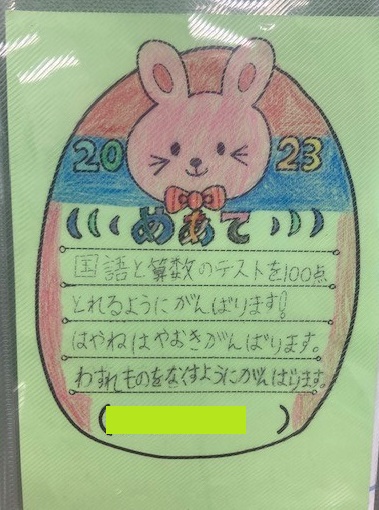 2023
めあて
国語と算数のテストを100点
とれるようにがんばります!
はやねはやおきがんばります。
わすれものをなくすようにがんばります。
( )